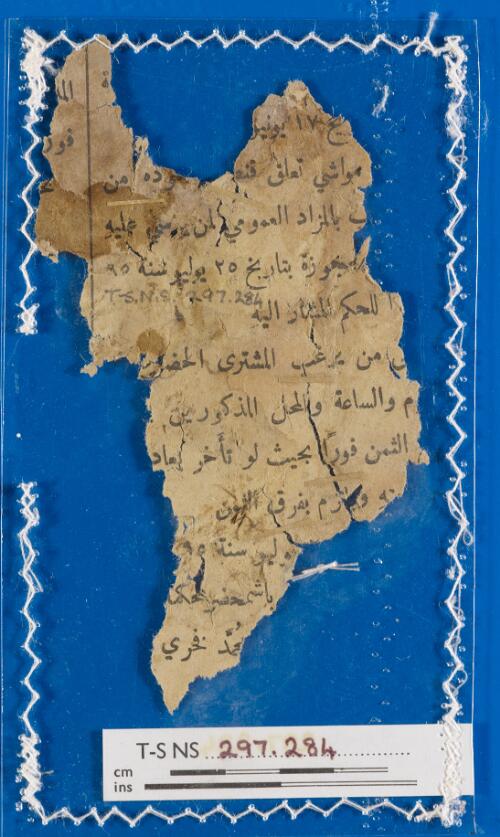 ة
١٧ يونيو
فور
مواشي تعلق
وده من
بالمزاد العمومي لمن يرسي عليه
بتاريخ ٢٥ يوليو سنة ٩٥
T-S.N.S. 297.284
للحكم المشار اليه
من يرغب المشترى الحضور
م والساعة والمحل المذكورين
الثمن فورًا بحيث لو تأخر يعاد
بفرق الثمن
سنة ٩٥
باشمحضر محكمة
محمد فخري
T-S NS 297.284
cm
ins